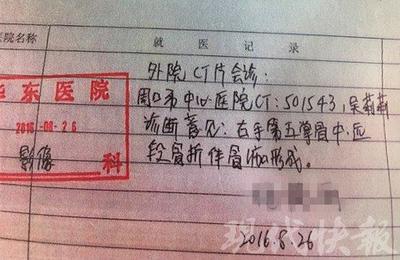 医院名称
就医记录
外院CT片会诊:
周口市中心医院CT:501543,吴莉莉
华东医院
2016-08-26
影像 科
诊断意见:右手第五掌骨中,远
段骨折伴骨痂形成。
现代快报
2016.8.26